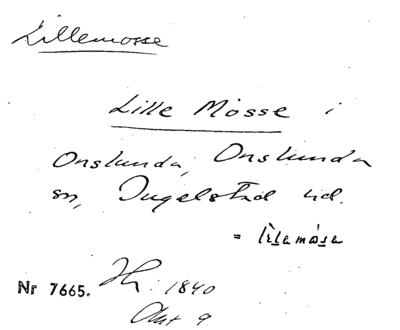 Lillemosse
Lille Mosse i
Onslunda, Onslunda
sn, Ingelstad hd.
= lilamåsa
Nr 7665. Th. 1840
Akt 9